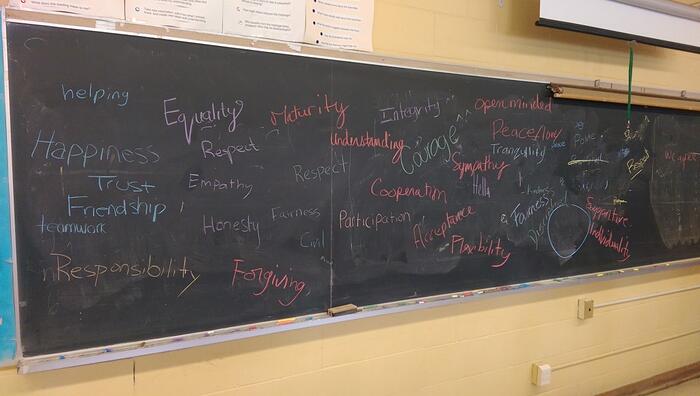 helping
Equality
Maturity
Integrity
Open minded
Happiness
Respect
Understanding
Courage
Peace/Love
Tranquility
Trust
Empathy
Respect
Sympathy
Friendship
Cooperation
Hello
teamwork
Honesty
Fairness
Participation
Acceptance
Fairness
Supportive
Civil
Flexibility
Individuality
Responsibility
Forgiving